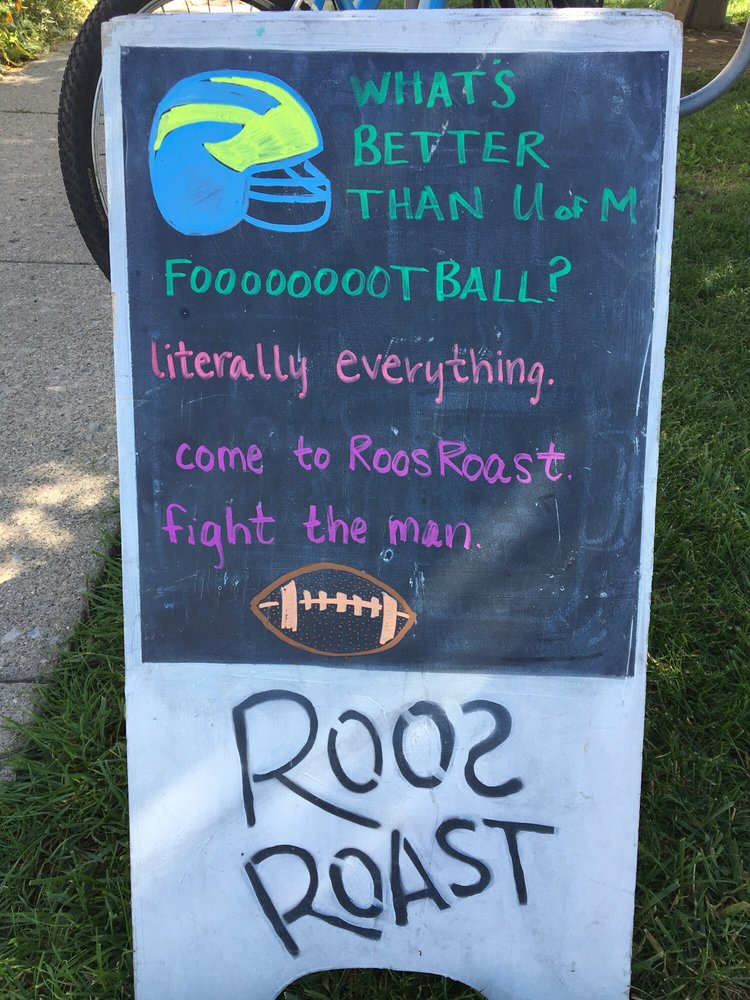 WHAT'S
BETTER
THAN U of M
FOOOOOOOOTBALL?
literally everything.
come to RoosRoast.
fight the man.
ROOS
ROAST